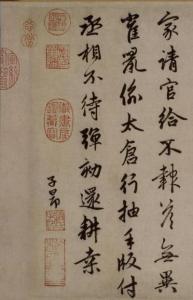 家請官給不報答無異
雀鼠偷太倉行抽手版付
丞相不待彈劾還耕桑
子昂